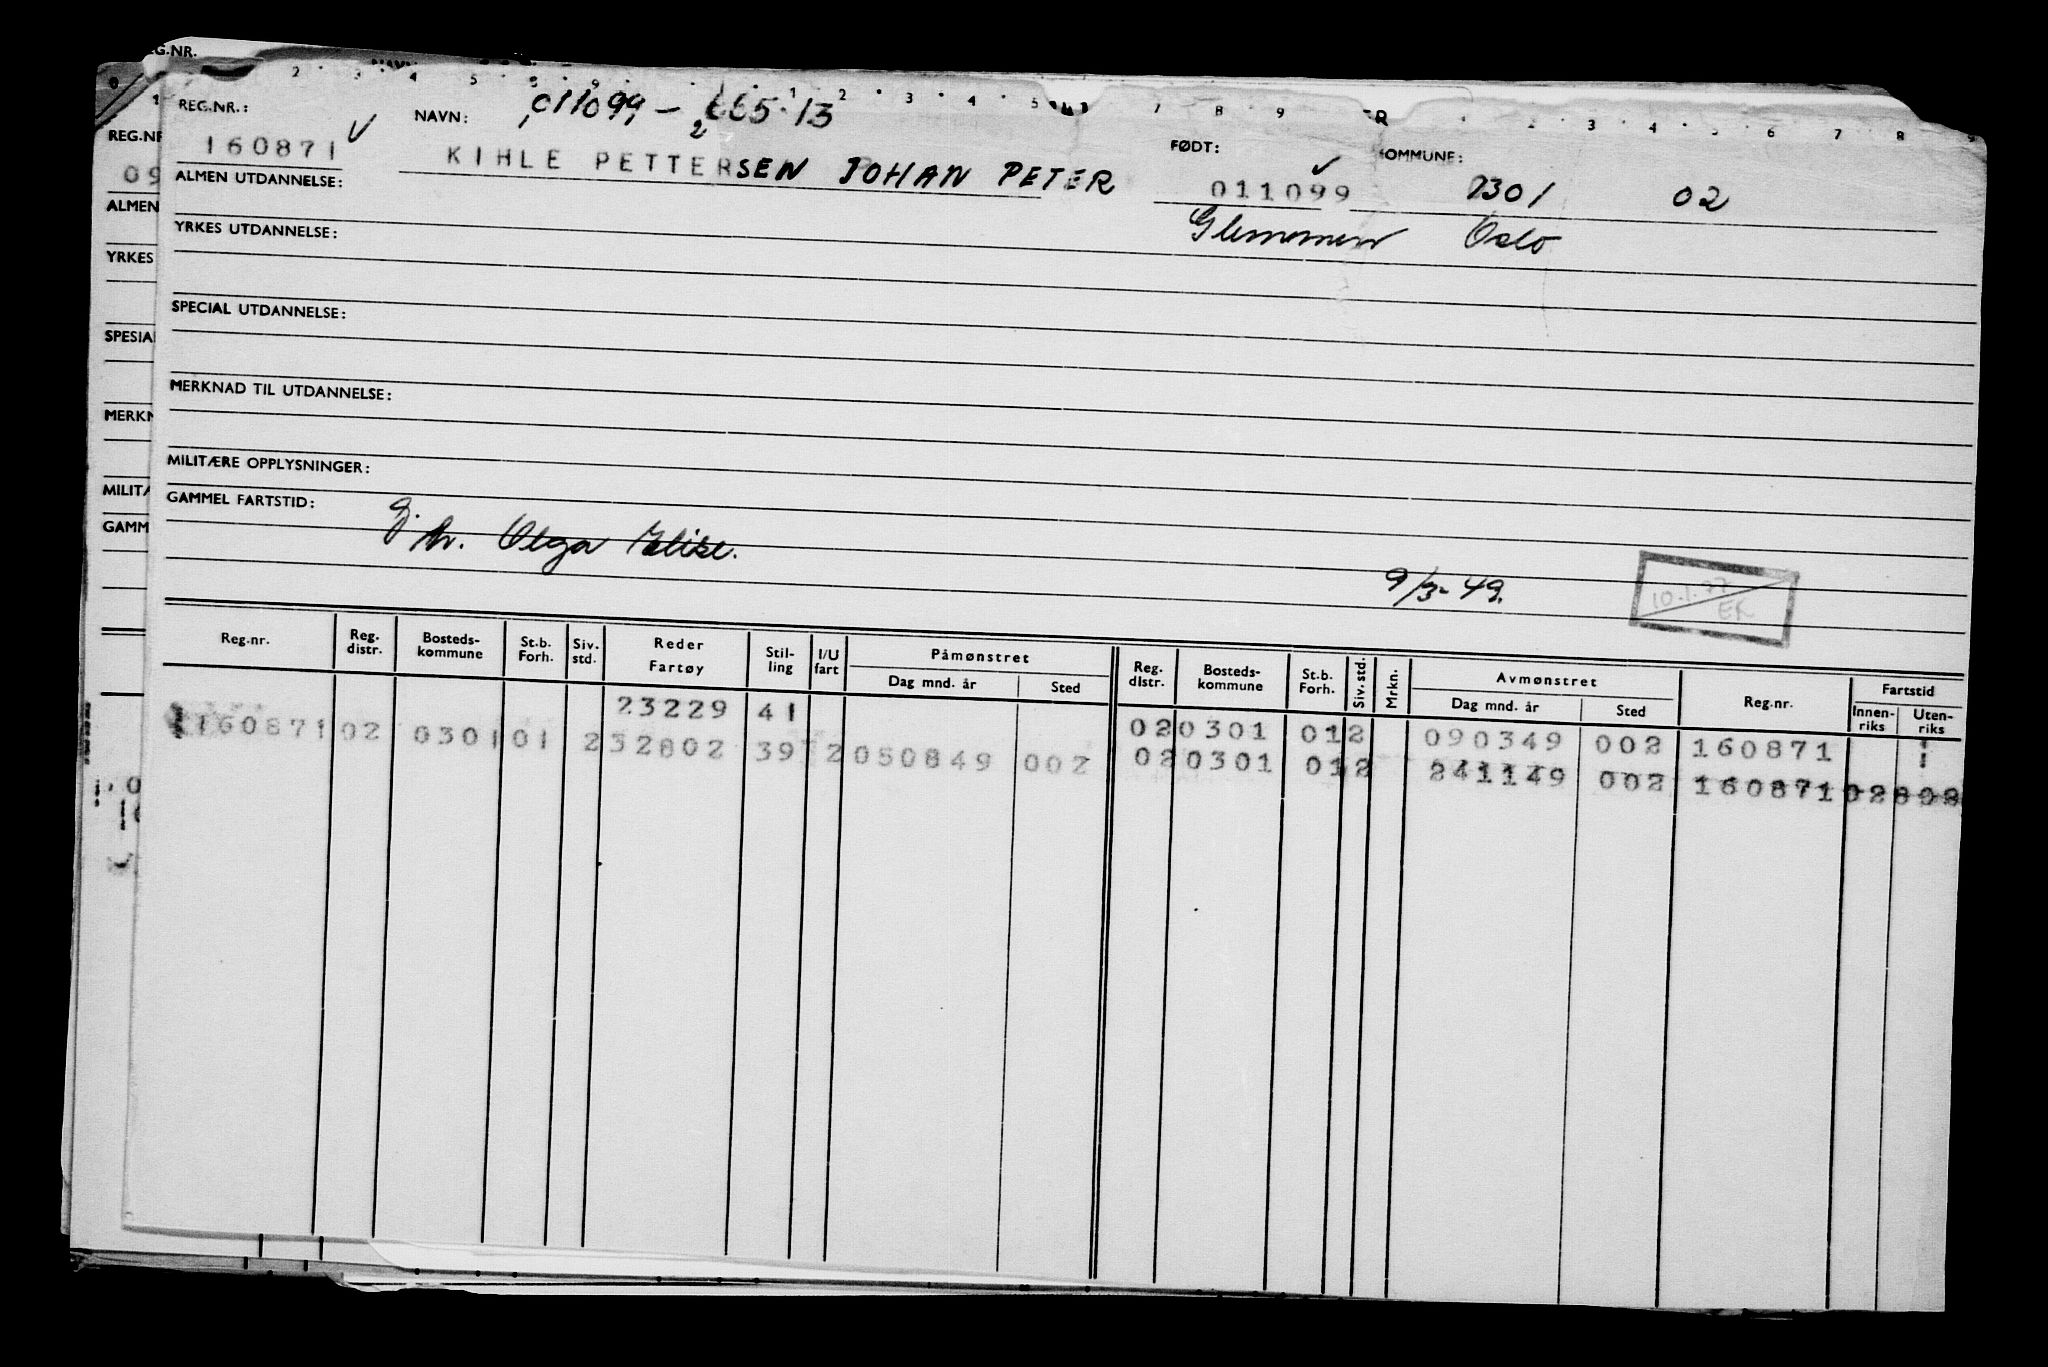 REG.NR.: NAVN: 011099 - 66513 FØDT: KOMMUNE:
160871 KIHLE PETTERSEN JOHAN PETER 011099 0301 02
ALMEN UTDANNELSE: Glemmen Oslo
YRKES UTDANNELSE:
SPECIAL UTDANNELSE:
MERKNAD TIL UTDANNELSE:
MILITÆRE OPPLYSNINGER:
GAMMEL FARTSTID:
Olga Elise.
9/3-49.
10.1.77
EK
Reg.nr. Reg. distr. Bosteds-kommune St.b. Forh. Siv. std. Reder Fartøy Stil-ling I/U fart Påmønstret Dag mnd. år Sted Reg. distr. Bosteds-kommune St.b. Forh. Siv. std. Mrkn. Avmønstret Dag mnd. år Sted Reg.nr. Fartstid Innen-riks Uten-riks
23229 41 02 0301 01 2 090349 002 160871
160871 02 0301 01 2 32802 39 2 050849 002 02 0301 01 2 241149 002 160871 02802